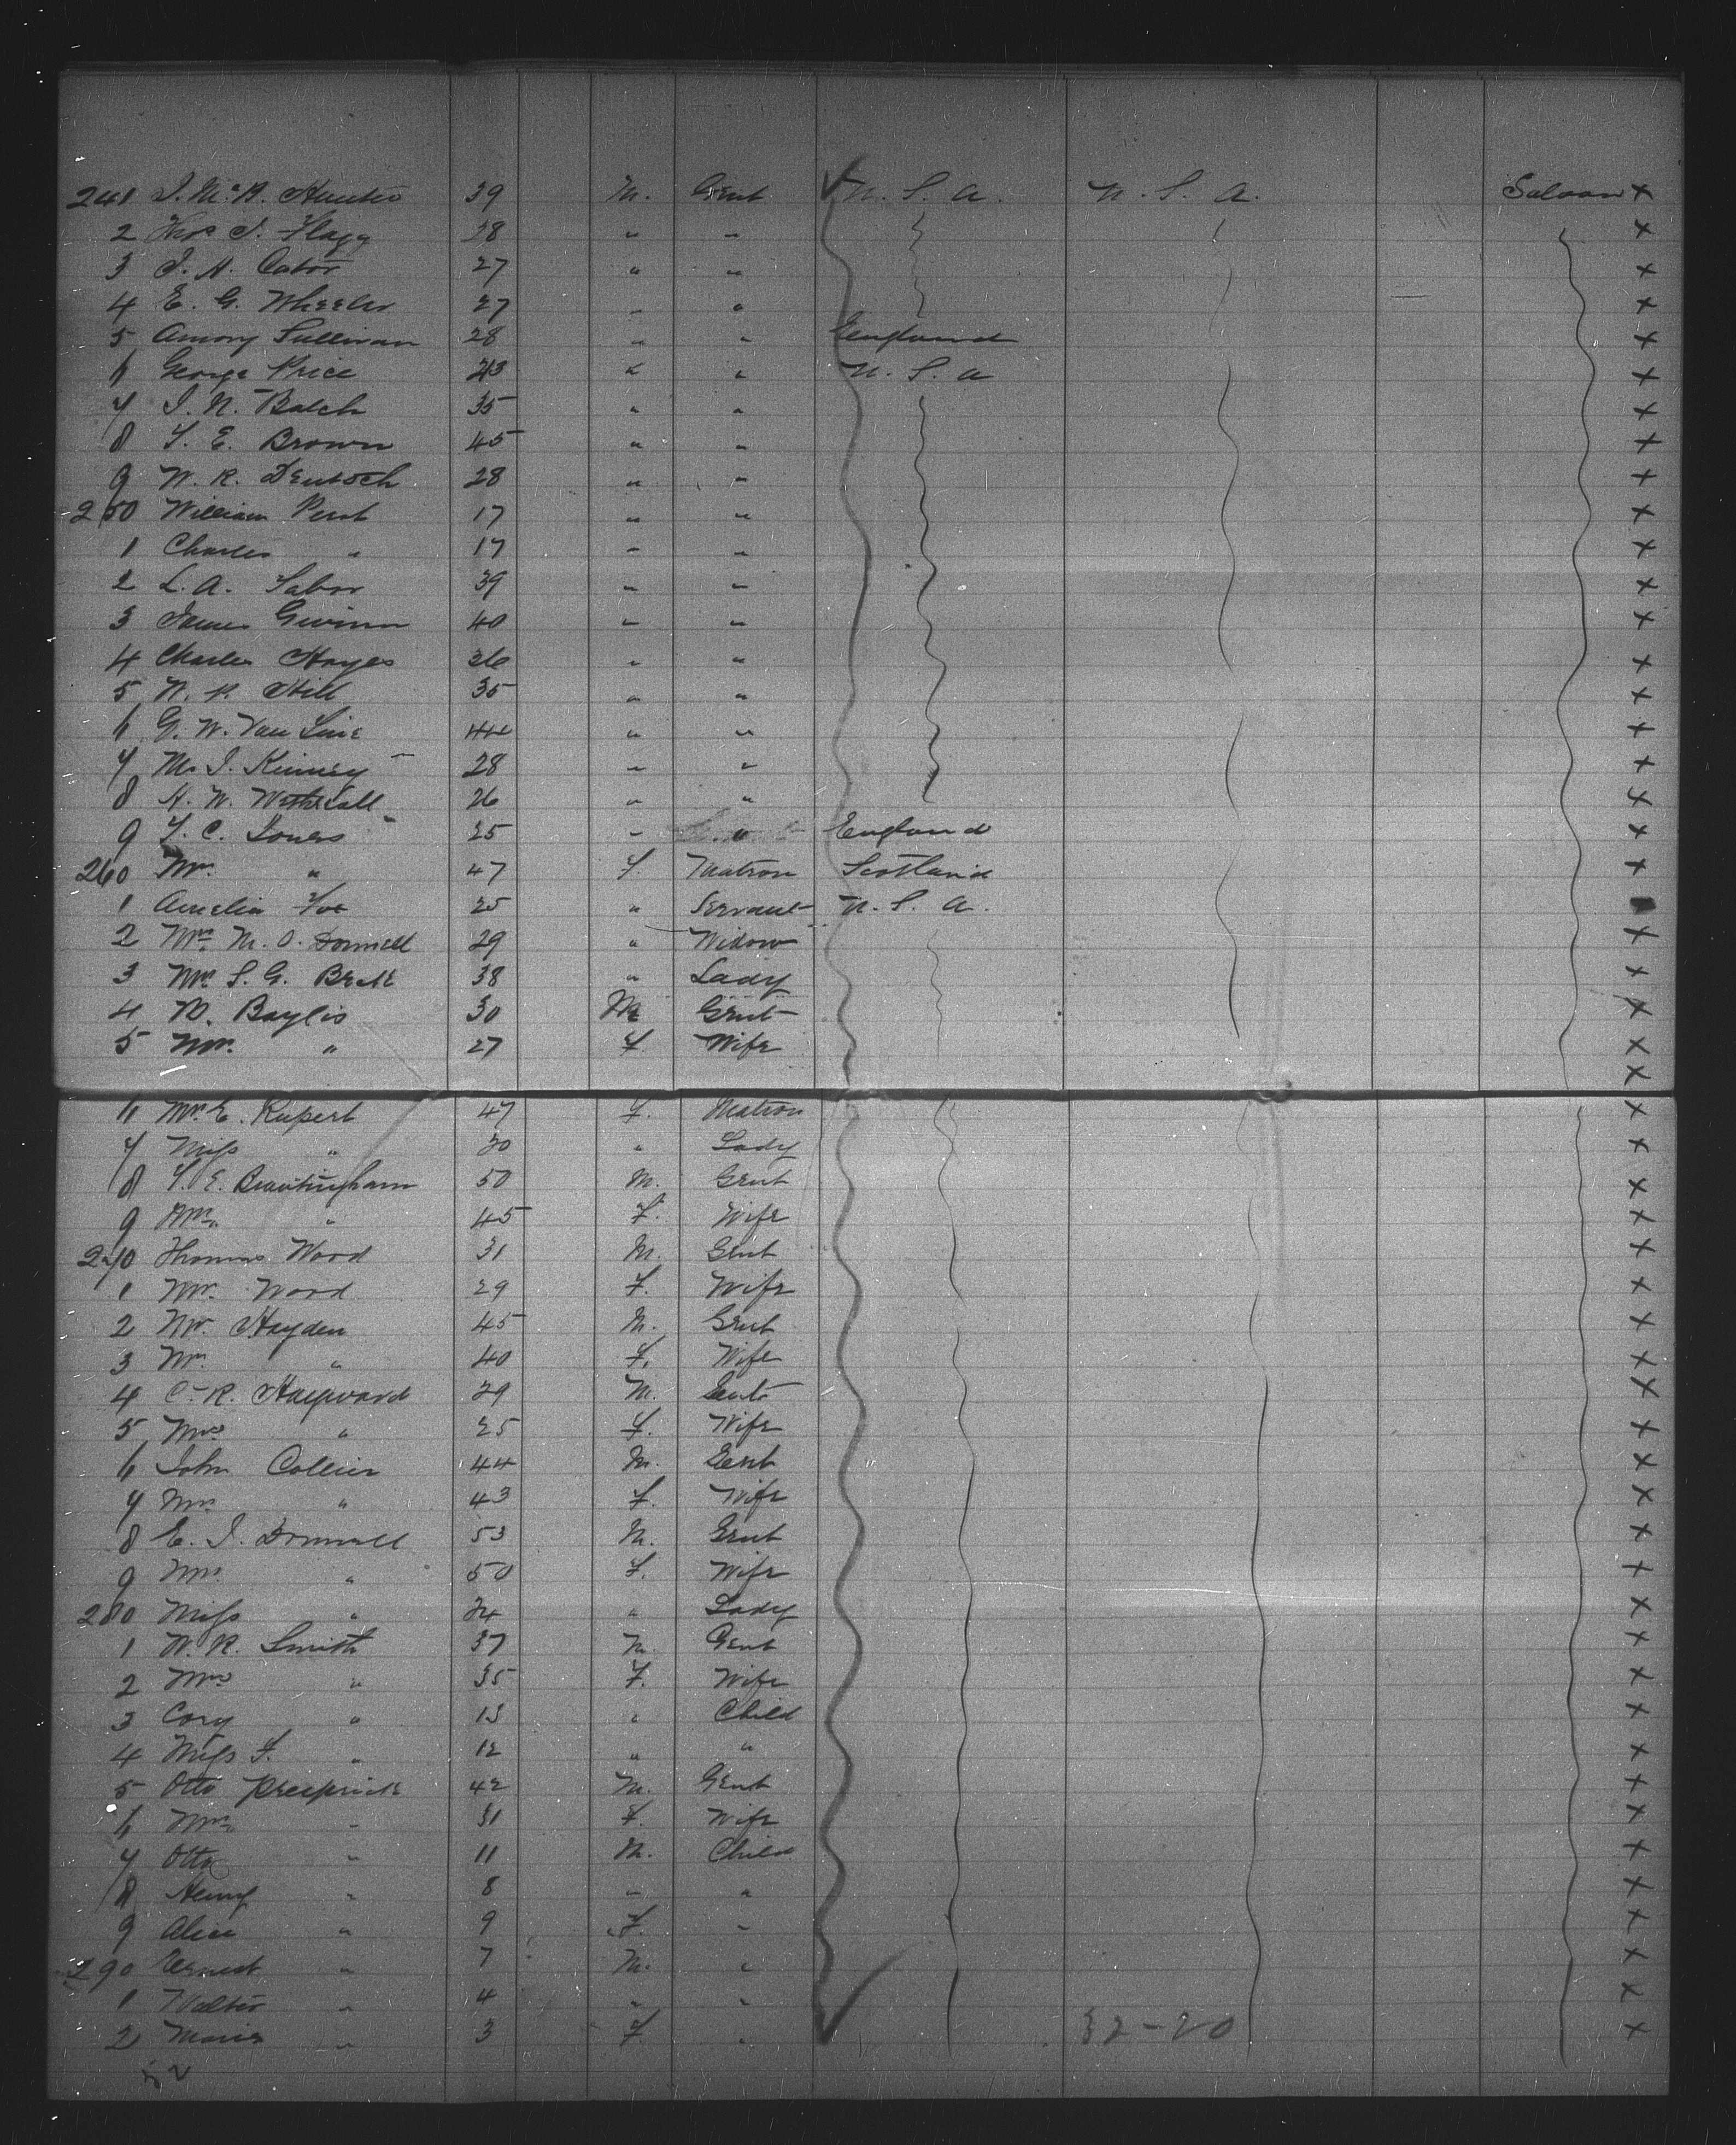 241 J. McR. Hunter 39 M. Gent U. S. A. U. S. A. Saloon X
2 Thos J. Flagg 38 " " X
3 J. H. Cator 27 " " X
4 E. G. Wheeler 27 " " X
5 Amory Sullivan 28 " " England X
6 George Price 23 " " U. S. A X
7 J. N. Balch 35 " " X
8 T. E. Brown 45 " " X
9 W. R. Deutsch 28 " " X
250 William Pent 17 " " X
1 Charles " 17 " " X
2 L. A. Tabor 39 " " X
3 James Gwinn 40 " " X
4 Charles Hayes 26 " " X
5 W. P. Hill 35 " " X
6 G. W. Van Sine 44 " " X
7 M. J. Kinney 28 " " X
8 H. W. Wetherall 26 " " X
9 T. C. Jones 25 " " England X
260 Mrs. " 47 F Matron Scotland X
1 Amelia Foe 25 " Servant U. S. A.
2 Mrs. M. O. Donnell 29 " Widow X
3 Mrs S. G. Brett 38 " Lady X
4 W. Baylis 30 M Gent X
5 Mrs. " 27 F. Wife X
X
6 Mrs. E. Rupert 47 F. Matron X
7 Miss " 20 " Lady X
8 T. E. Brantingham 50 M. Gent X
9 Mrs. " 45 F. Wife X
270 Thomas Wood 31 M. Gent X
1 Mrs. Wood 29 F. Wife X
2 Mr. Hayden 45 M. Gent X
3 Mrs. " 40 F. Wife X
4 C. R. Hayward 29 M. Gent X
5 Mrs " 25 F. Wife X
6 John Collier 44 M. Gent X
7 Mrs. " 43 F. Wife X
8 E. J. Donnell 53 M. Gent X
9 Mrs. " 50 F. Wife X
280 Miss " 24 " Lady X
1 W. R. Smith 37 M. Gent X
2 Mrs " 35 F. Wife X
3 Cory " 13 " Child X
4 Miss F. " 12 " " X
5 Otto 42 M. Gent X
6 Mrs. " 31 F. Wife X
7 Otto " 11 M. Child X
8 Henry " 8 " " X
9 Alice " 9 F. " X
290 Ernest " 7 M. " X
1 Walter " 4 " " X
2 Marie " 3 F. " 32-20 X
52